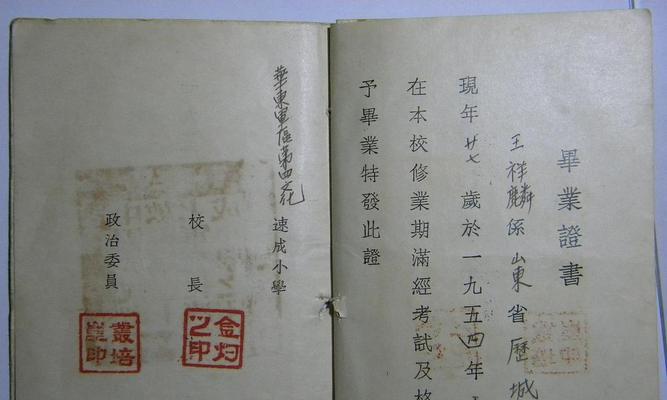 畢業證書
王祥麟係山東省歷城
現年廿七歲於一九五四年
在本校修業期滿經考試及格
予畢業特發此證
華東軍區第四文化速成小學
校長
金灼之印
政治委員
叢培
印